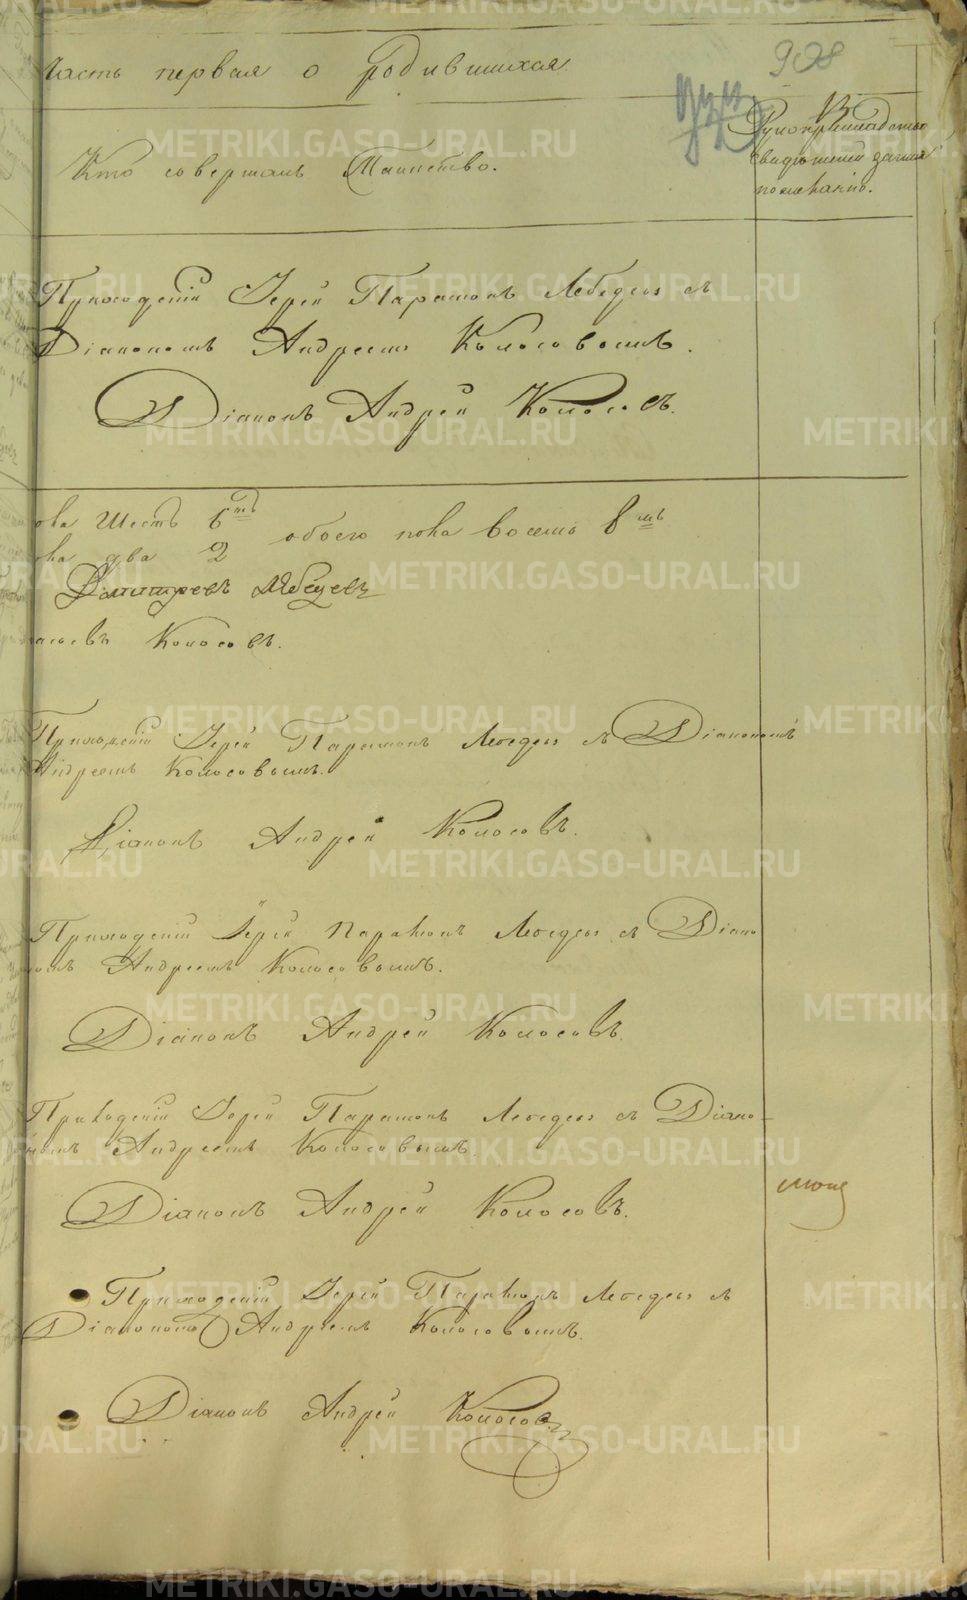 Часть первая о родившихся
Кто совершалъ Таинство.
978
Рукоприкладство
свидетелей записи
по желанію.
Приходскій Іерей Парамонъ Лебедевъ съ
Діакономъ Андреемъ Колосовымъ.
Діаконъ Андрей Колосовъ.
пола Шесть 6ть
пола два 2
обоего пола восемь 8мь
Димитріевъ Лебедевъ
Колосовъ.
Приходскій Іерей Парамонъ Лебедевъ съ Діакономъ
Андреемъ Колосовымъ.
Діаконъ Андрей Колосовъ.
Приходскій Іерей Парамонъ Лебедевъ съ Діако
номъ Андреемъ Колосовымъ.
Діаконъ Андрей Колосовъ.
Приходскій Іерей Парамонъ Лебедевъ съ Діако-
номъ Андреемъ Колосовымъ.
Діаконъ Андрей Колосовъ.
Приходскій Іерей Парамонъ Лебедевъ съ
Діакономъ Андреемъ Колосовымъ.
Діаконъ Андрей Колосовъ
METRIKI.GASO-URAL.RU